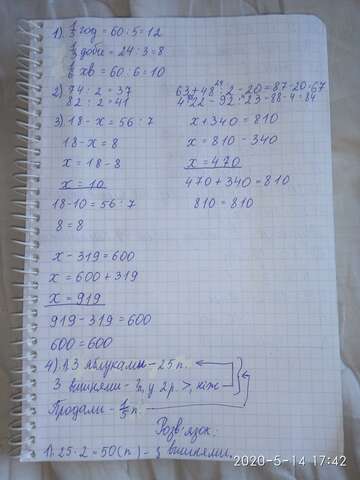 1) 1/5 год = 60 : 5 = 12
1/3 доби = 24 : 3 = 8
1/6 хв = 60 : 6 = 10
2) 74 : 2 = 37
82 : 2 = 41
63 + 48 : 2 - 20 = 87 - 20 = 67
4 · 22 - 92 : 23 = 88 - 4 = 84
3) 18 - x = 56 : 7
18 - x = 8
x = 18 - 8
x = 10
18 - 10 = 56 : 7
8 = 8
x + 340 = 810
x = 810 - 340
x = 470
470 + 340 = 810
810 = 810
x - 319 = 600
x = 600 + 319
x = 919
919 - 319 = 600
600 = 600
4) З яблуками - 25 п.
З вишнями - ?, у 2 р. >, ніж
Продали - 1/5 п.
Розв'язок:
1) 25 · 2 = 50 (п) - з вишнями.
2020-5-14 17:42